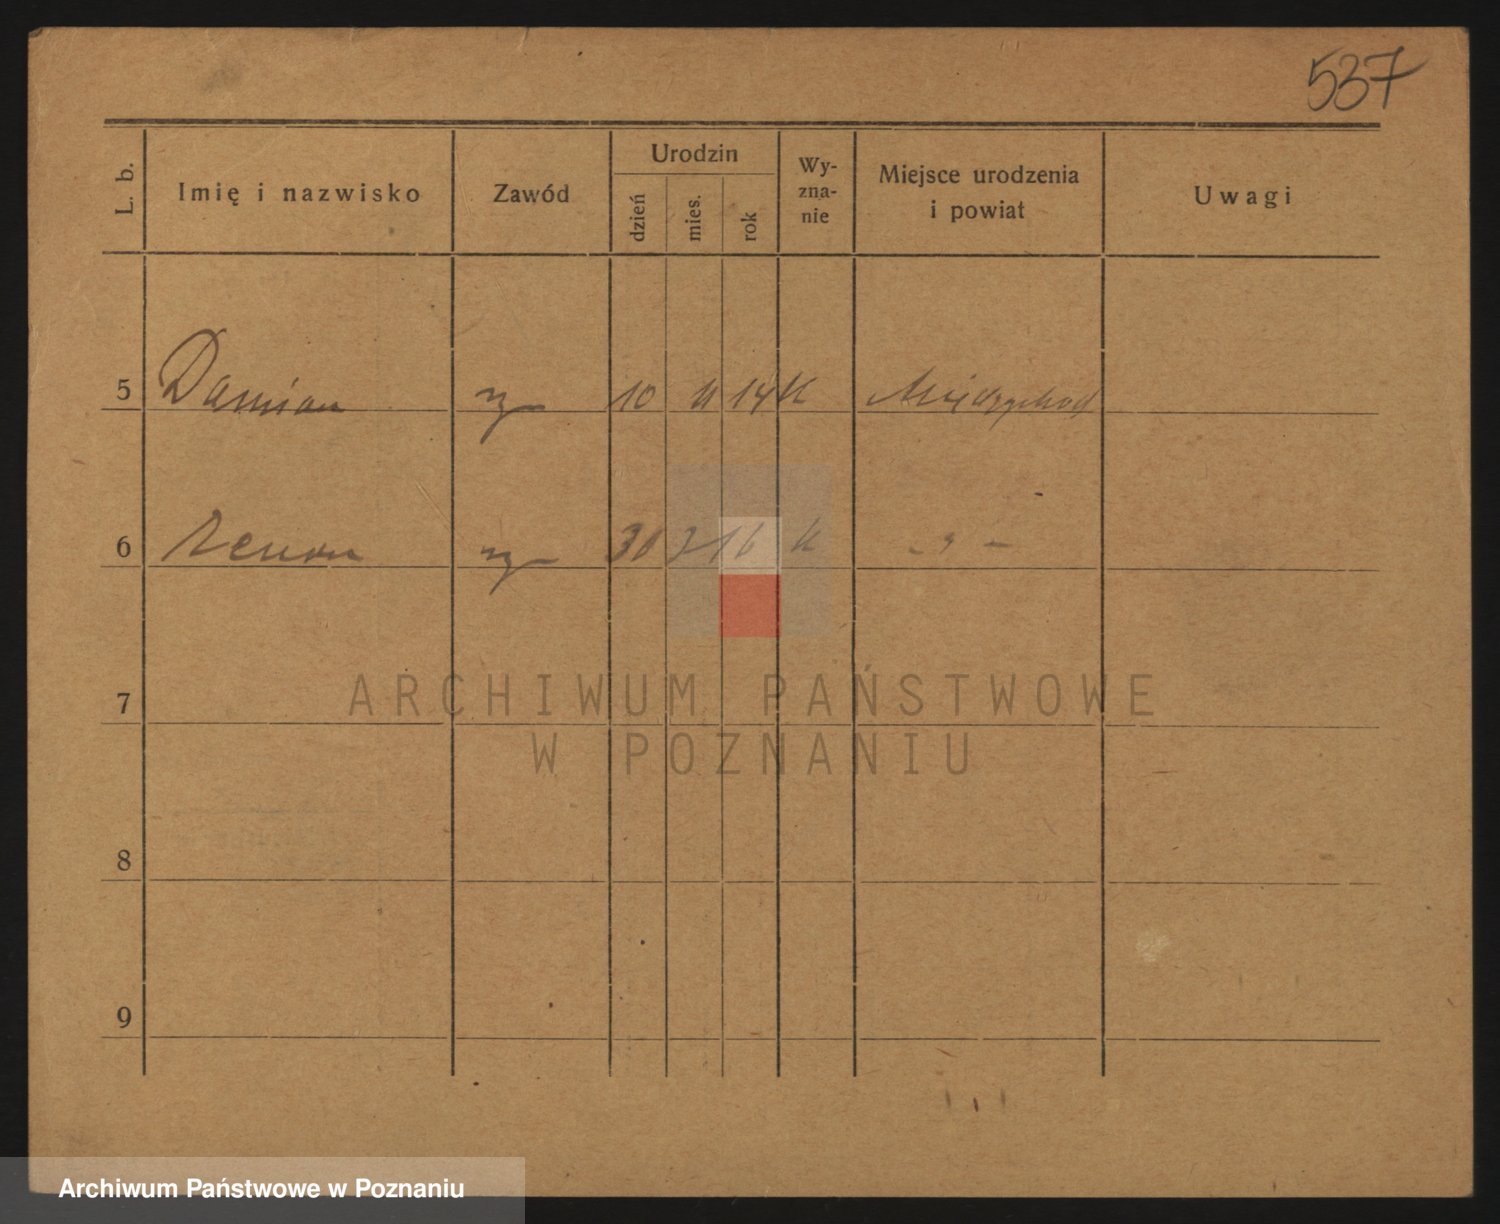 537
L. b.
Imię i nazwisko
Zawód
Urodzin
dzień
mies.
rok
Wy-
zna-
nie
Miejsce urodzenia
i powiat
Uwagi
5 Damian 10 14 K Międzychód
6 Zenon 30 3 16 K - " -
7
8
9
ARCHIWUM PAŃSTWOWE
W POZNANIU
Archiwum Państwowe w Poznaniu